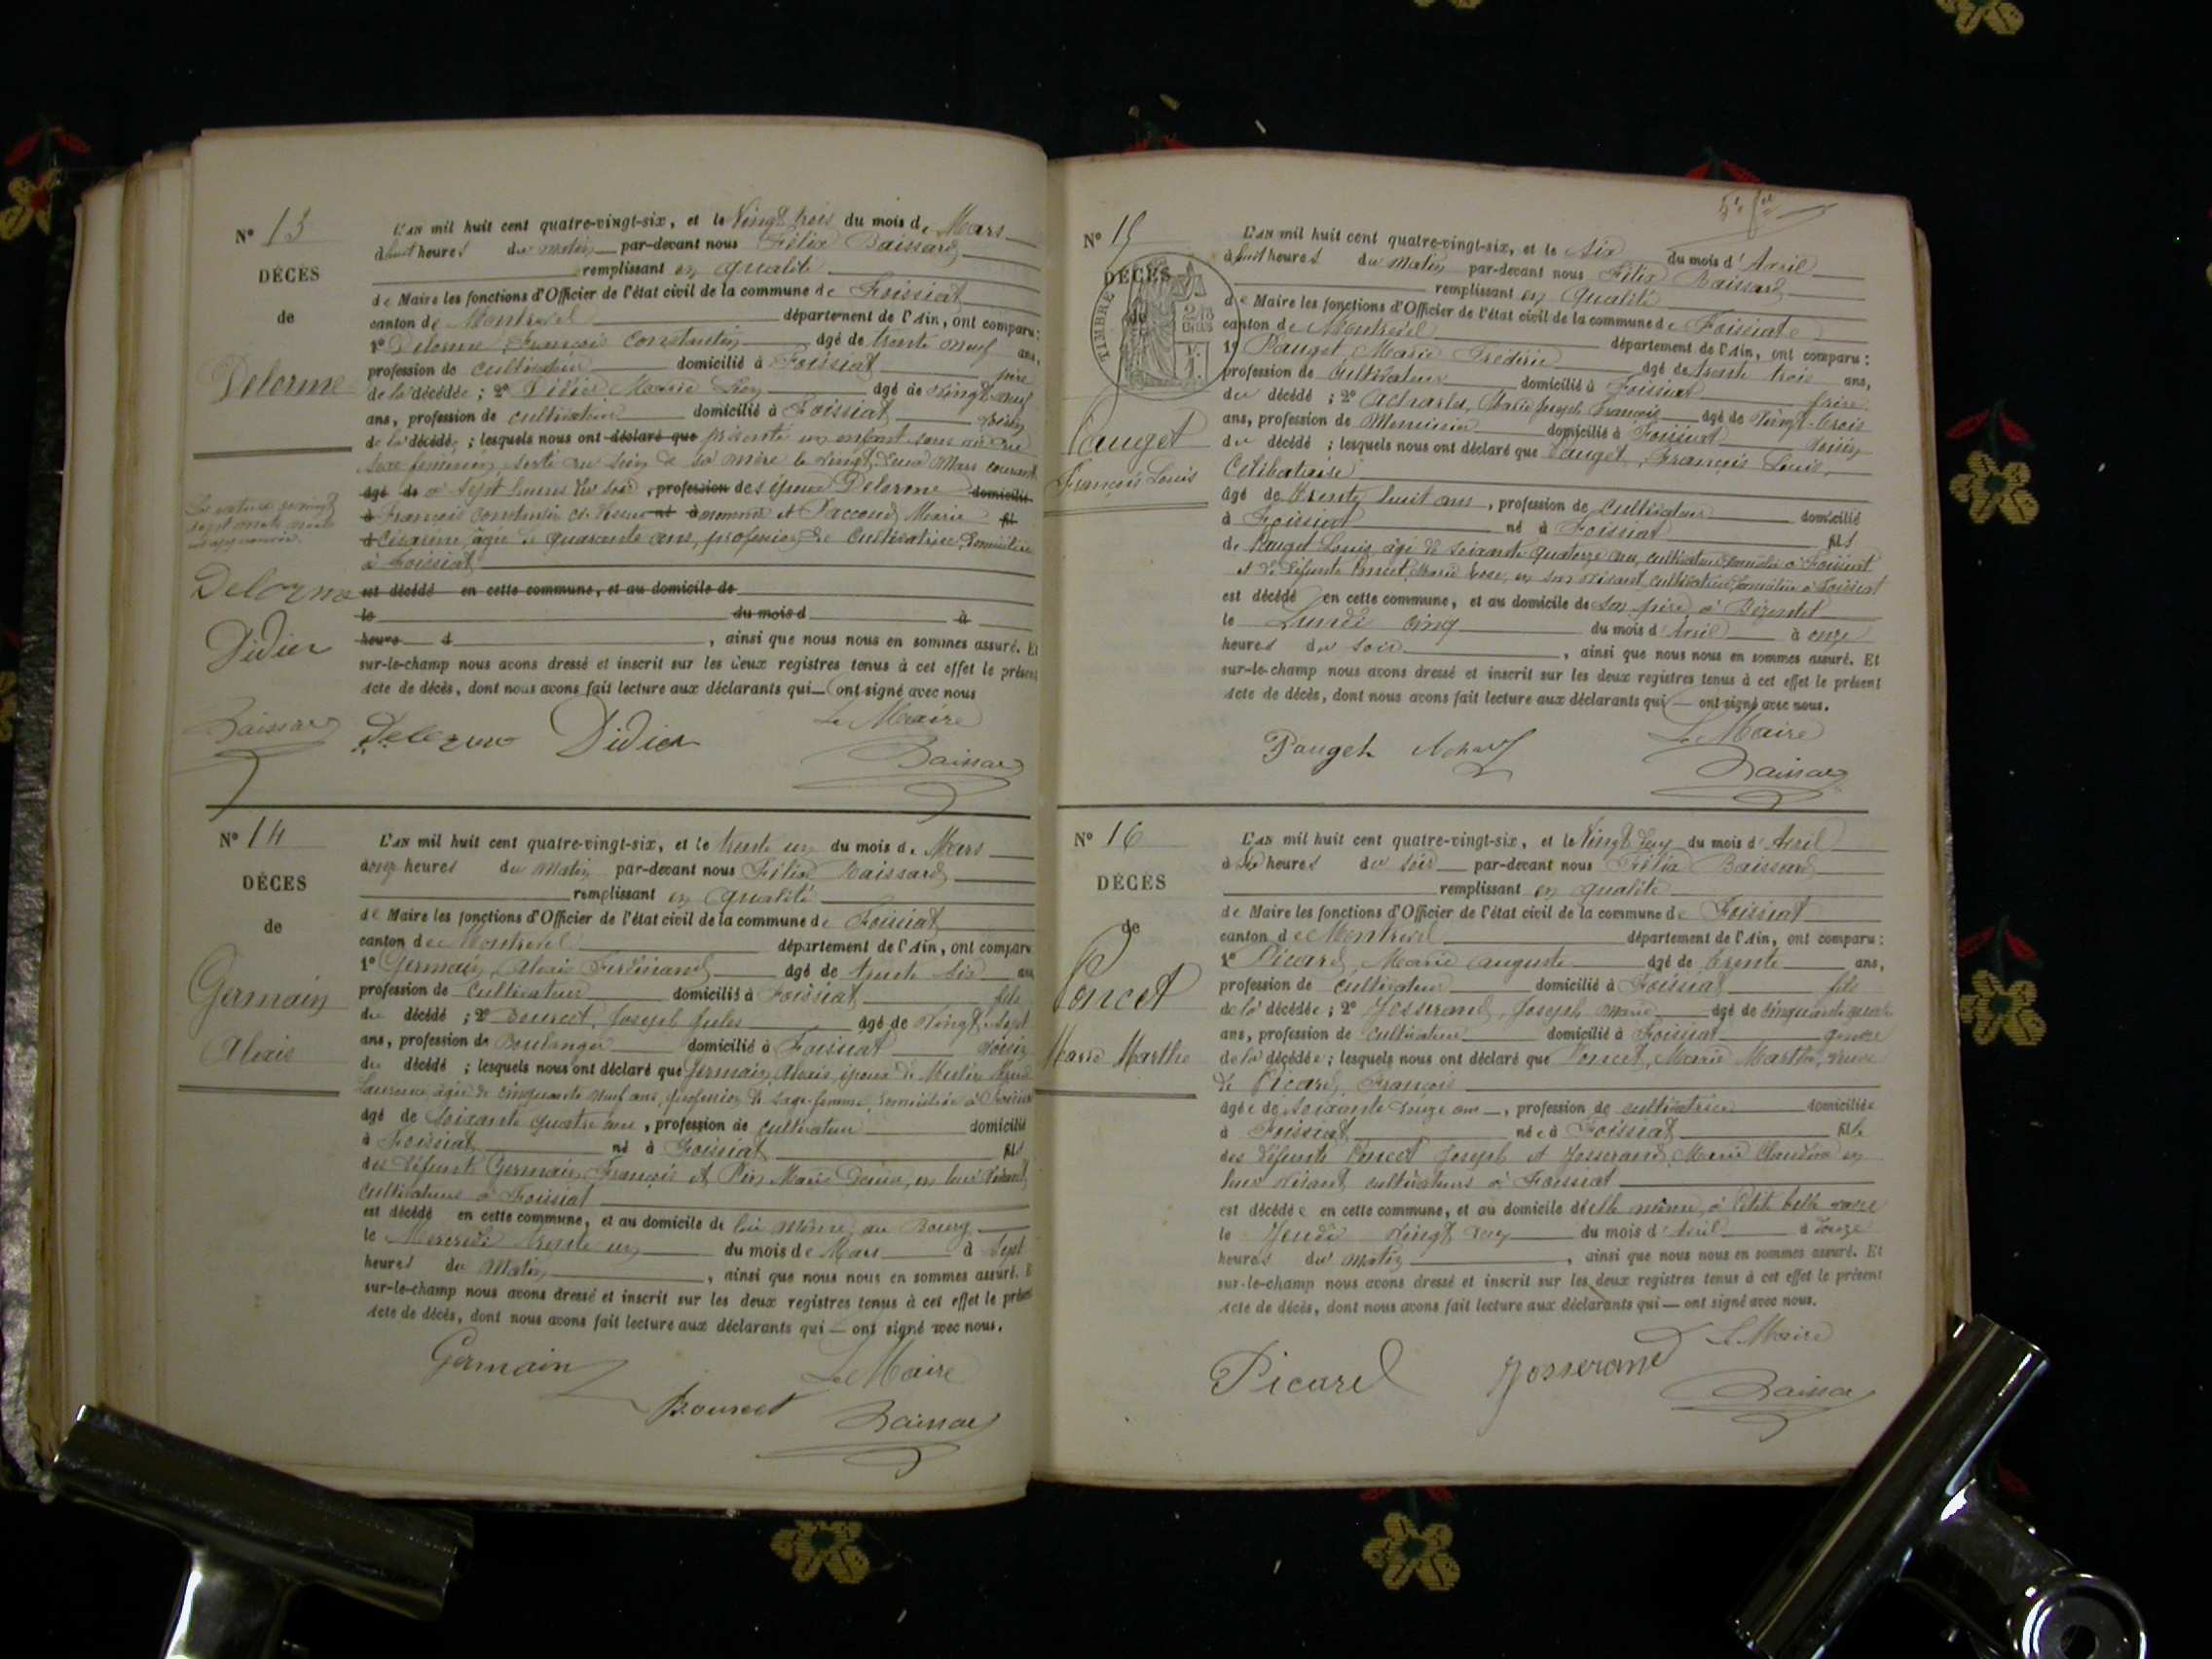 N° 13
DÉCÈS
de
Delorme
La rature de vingt
sept mots nuls
approuvée.
Delorme
Didier
Baissard
L'AN mil huit cent quatre-vingt-six, et le Vingt trois du mois de Mars
à huit heures du matin par-devant nous Félix Baissard
remplissant en qualité
de Maire les fonctions d'Officier de l'état civil de la commune de Foissiat
canton de Montrevel département de l'Ain, ont comparu :
1° Delorme François Constantin âgé de trente neuf ans,
profession de cultivateur domicilié à Foissiat père
de la décédée ; 2° Didier Marie Léon âgé de vingt neuf
ans, profession de cultivateur domicilié à Foissiat voisin
de la décédée ; lesquels nous ont déclaré que présenté un enfant sans vie du
sexe féminin, sorti du sein de sa mère le vingt deux Mars courant
âgé de à sept heures du soir, profession des époux Delorme domicilié
à François Constantin né à et Paccoud Marie fil
d âgée de quarante ans, profession de Cultivatrice, domiciliée
à Foissiat
est décédé en cette commune, et au domicile de
le du mois d à
heure d , ainsi que nous nous en sommes assuré. Et
sur-le-champ nous avons dressé et inscrit sur les deux registres tenus à cet effet le présent
acte de décès, dont nous avons fait lecture aux déclarants qui — ont signé avec nous
Le Maire
Delorme Didier Baissard
N° 14
DÉCÈS
de
Germain
Alexis
L'AN mil huit cent quatre-vingt-six, et le trente un du mois de Mars
à onze heures du Matin par-devant nous Félix Baissard
remplissant en qualité
de Maire les fonctions d'Officier de l'état civil de la commune de Foissiat
canton de Montrevel département de l'Ain, ont comparu
1° Germain, Alexis Ferdinand âgé de trente six ans
profession de Cultivateur domicilié à Foissiat fils
du décédé ; 2° Bourcet, Joseph Jules âgé de Vingt Sept
ans, profession de Boulanger domicilié à Foissiat voisin
du décédé ; lesquels nous ont déclaré que Germain, Alexis, époux de
Laurence, âgée de cinquante neuf ans, profession de sage-femme, domiciliée à Foissiat
âgé de soixante quatre ans, profession de cultivateur domicilié
à Foissiat né à Foissiat fils
des défunts Germain, François et Pin Marie Denise, en leur vivant
cultivateurs à Foissiat
est décédé en cette commune, et au domicile de lui même, au Bourg
le Mercredi trente un du mois de Mars à Sept
heures du Matin , ainsi que nous nous en sommes assuré. E
sur-le-champ nous avons dressé et inscrit sur les deux registres tenus à cet effet le présent
acte de décès, dont nous avons fait lecture aux déclarants qui — ont signé avec nous.
Germain Le Maire
Bourcet Baissard
N° 15
DÉCÈS
de
TIMBRE
Pauget
François Louis
L'AN mil huit cent quatre-vingt-six, et le six du mois d'Avril
à huit heures du Matin par-devant nous Félix Baissard
remplissant en qualité
de Maire les fonctions d'Officier de l'état civil de la commune de Foissiat
canton de Montrevel département de l'Ain, ont comparu :
1° Pauget, Marie Frédéric âgé de trente trois ans,
profession de Cultivateur domicilié à Foissiat frère
du décédé ; 2° Marie Joseph François âgé de Vingt-trois
ans, profession de Menuisier domicilié à Foissiat voisin
du décédé ; lesquels nous ont déclaré que Pauget, François Louis,
Célibataire
âgé de trente huit ans, profession de Cultivateur domicilié
à Foissiat né à Foissiat fils
de Pauget Louis, âgé de soixante quatorze ans, cultivateur domicilié à Foissiat
et de défunte Poncet, Marie Rose, en son vivant, cultivatrice domiciliée à Foissiat
est décédé en cette commune, et au domicile de son père, à Bézentet
le Lundi cinq du mois d'Avril à onze
heures du soir , ainsi que nous nous en sommes assuré. Et
sur-le-champ nous avons dressé et inscrit sur les deux registres tenus à cet effet le présent
acte de décès, dont nous avons fait lecture aux déclarants qui — ont signé avec nous.
Le Maire
Pauget Baissard
N° 16
DÉCÈS
de
Poncet
Marie Marthe
L'AN mil huit cent quatre-vingt-six, et le Vingt deux du mois d'Avril
à six heures du soir par-devant nous Félix Baissard
remplissant en qualité
de Maire les fonctions d'Officier de l'état civil de la commune de Foissiat
canton de Montrevel département de l'Ain, ont comparu :
1° Picard, Marie Auguste âgé de trente ans,
profession de cultivateur domicilié à Foissiat fils
de la décédée ; 2° Josserand, Joseph Marie âgé de cinquante quatre
ans, profession de cultivateur domicilié à Foissiat gendre
de la décédée ; lesquels nous ont déclaré que Poncet, Marie Marthe, veuve
de Picard, François
âgée de soixante douze ans, profession de cultivatrice domiciliée
à Foissiat née à Foissiat fille
des défunts Poncet Joseph et Josserand, Marie Claudine en
leur vivant cultivateurs à Foissiat
est décédée en cette commune, et au domicile d'elle même, à Petite belle
le Jeudi vingt deux du mois d'Avril à douze
heures du matin , ainsi que nous nous en sommes assuré. Et
sur-le-champ nous avons dressé et inscrit sur les deux registres tenus à cet effet le présent
acte de décès, dont nous avons fait lecture aux déclarants qui — ont signé avec nous.
Le Maire
Picard Josserand Baissard